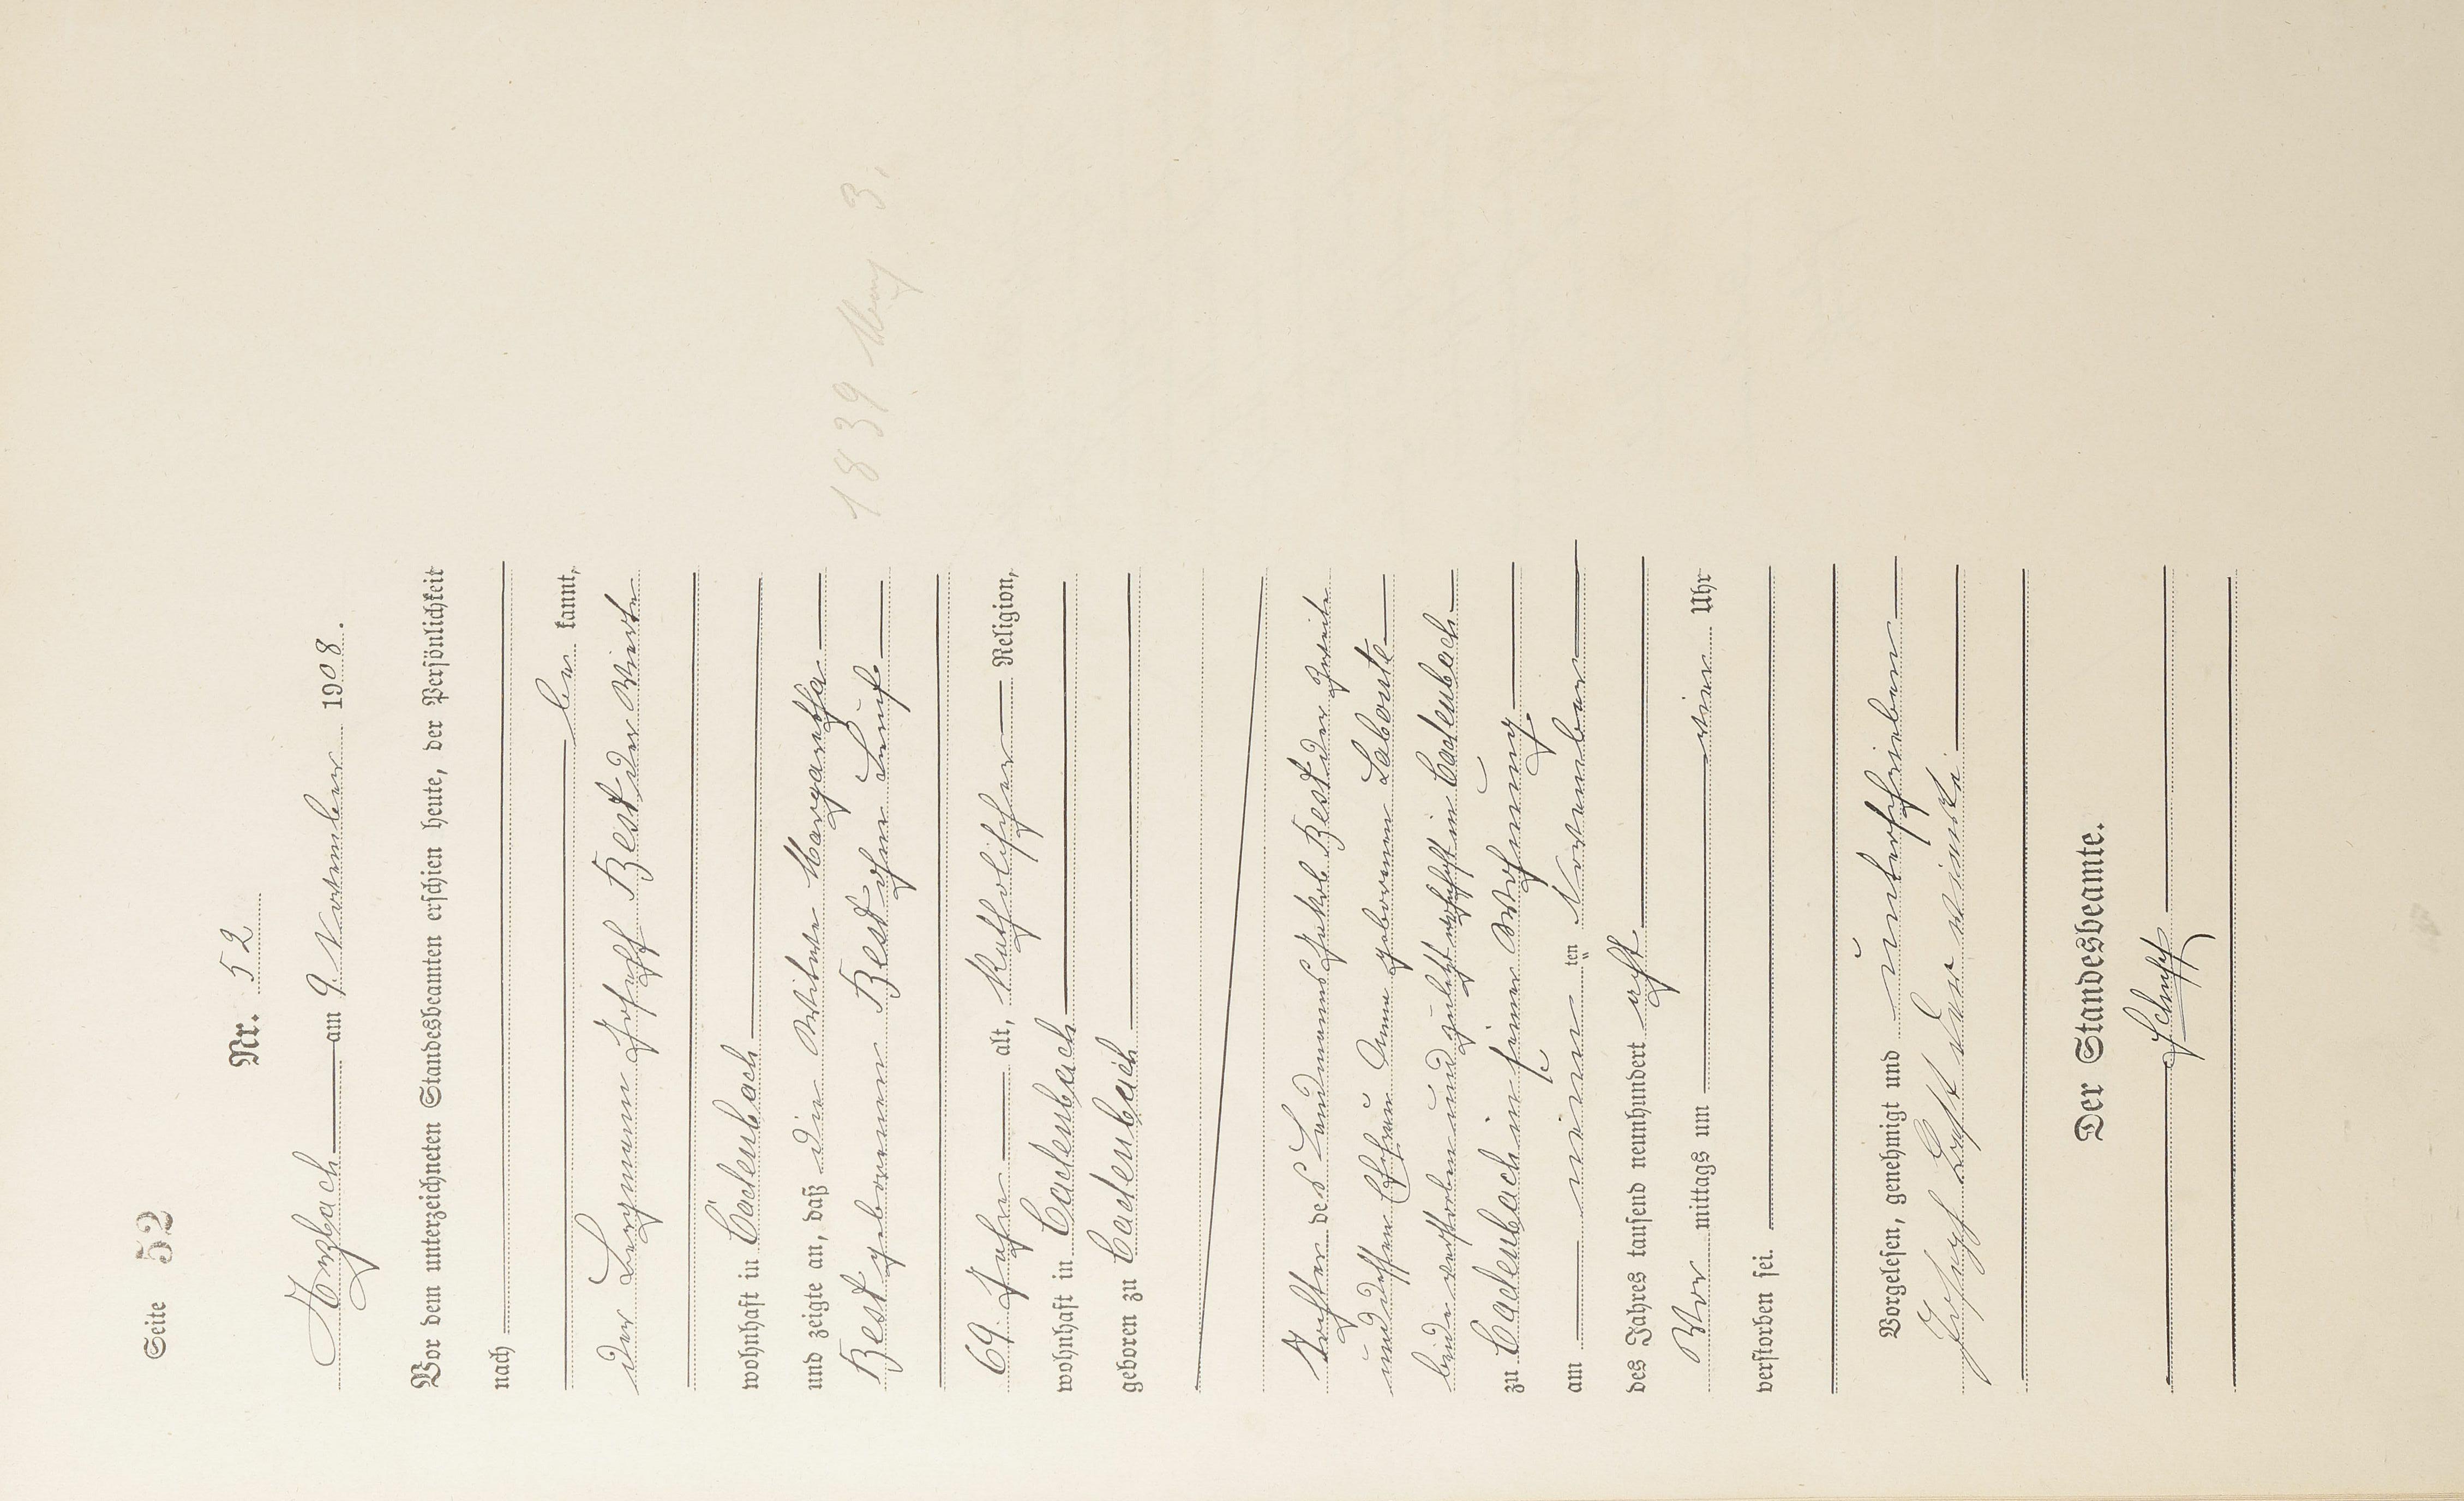 Seite 52
Nr. 52
Arzbach am 9. November 1908.
Vor dem unterzeichneten Standesbeamten erschien heute, der Persönlichkeit
nach
be kannt,
der Bergmann Joseph Best der Vierte
wohnhaft in Cadenbach
und zeigte an, daß die Witwe Margaretha
Best geborenen Best ohne Beruf
1839 May 3.
69 Jahre alt, Katholischer Religion,
wohnhaft in Cadenbach
geboren zu Cadenbach
Tochter des Landmanns Jakob Best der Zweite
und dessen Ehefrau Anna geborenen Labonte
beide verstorben und zuletzt wohnhaft in Cadenbach
zu Cadenbach in seiner Wohnung
am neun ten November
des Jahres tausend neunhundert acht
Vor mittags um vier Uhr
verstorben sei.
Vorgelesen, genehmigt und unterschrieben
Joseph Best der vierte
Der Standesbeamte.